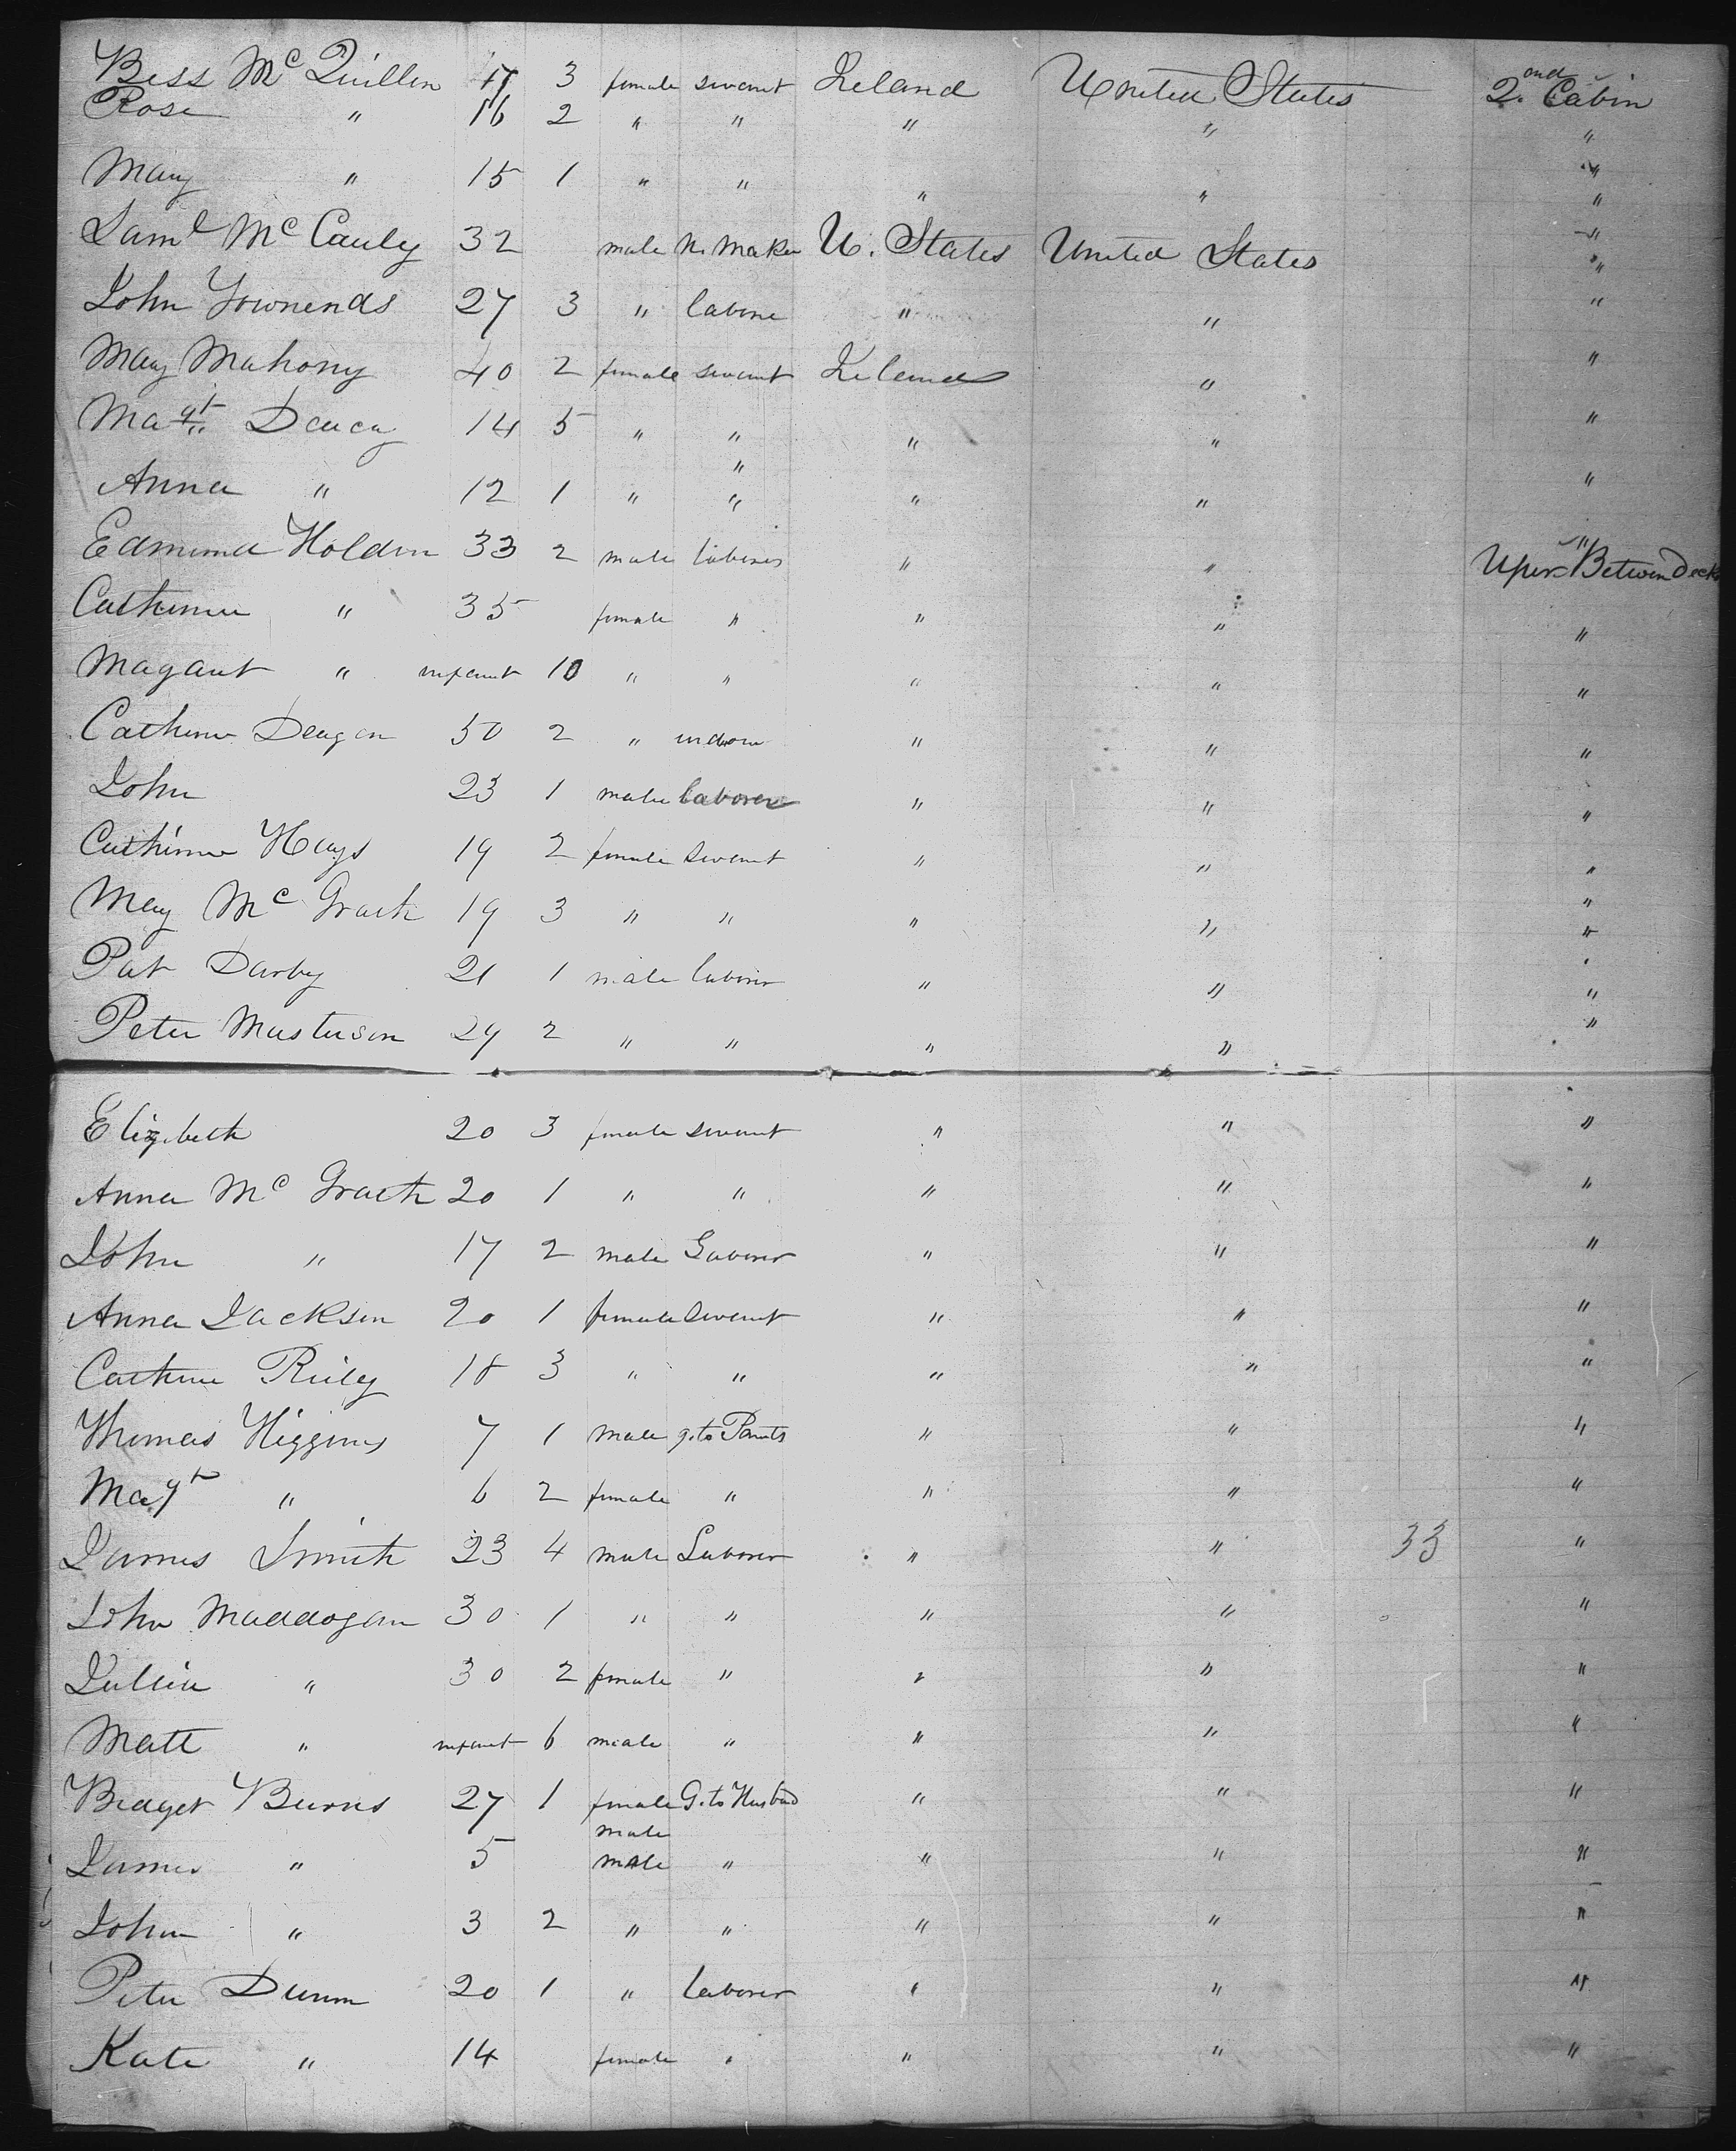 Bess Mc Quillen 17 3 female servant Ireland United States 2nd Cabin
Rose " 16 2 " " " " "
Mary " 15 1 " " " " "
Saml Mc Cauly 32 male Maker U. States United States "
John Townends 27 3 " labore " " "
Mary Mahony 40 2 female servant Ireland " "
Magt. 14 5 " " " " "
Anna " 12 1 " " " " "
Edmund Holden 33 2 male laborer " " Uper Betwen Decks
Catherine " 35 female " " " "
Magaret " infant 10 " " " " "
Catherine Deagan 50 2 " widow " " "
John 23 1 male laborer " " "
Catherine Hays 19 2 female servant " " "
Mary Mc Grath 19 3 " " " " "
Pat Darby 21 1 male laborer " " "
Peter Masterson 29 2 " " " " "
Elizabeth 20 3 female servant " " "
Anna Mc Grath 20 1 " " " " "
John " 17 2 male Laborer " " "
Anna Jackson 20 1 female servant " " "
Cathrine Riily 18 3 " " " " "
Thomas Higgins 7 1 male g. to Parnts " " "
Magt " 6 2 female " " " "
James Smith 23 4 male Laborer " " 33 "
John Maddogan 30 1 " " " " "
Jullia " 30 2 female " " " "
Matt " infant 6 male " " " "
Bridget Burns 27 1 female G. to Husband " " "
male
James " 5 male " " " "
John " 3 2 " " " " "
Peter Dunn 20 1 " laborer " " "
Kate " 14 female " " " "